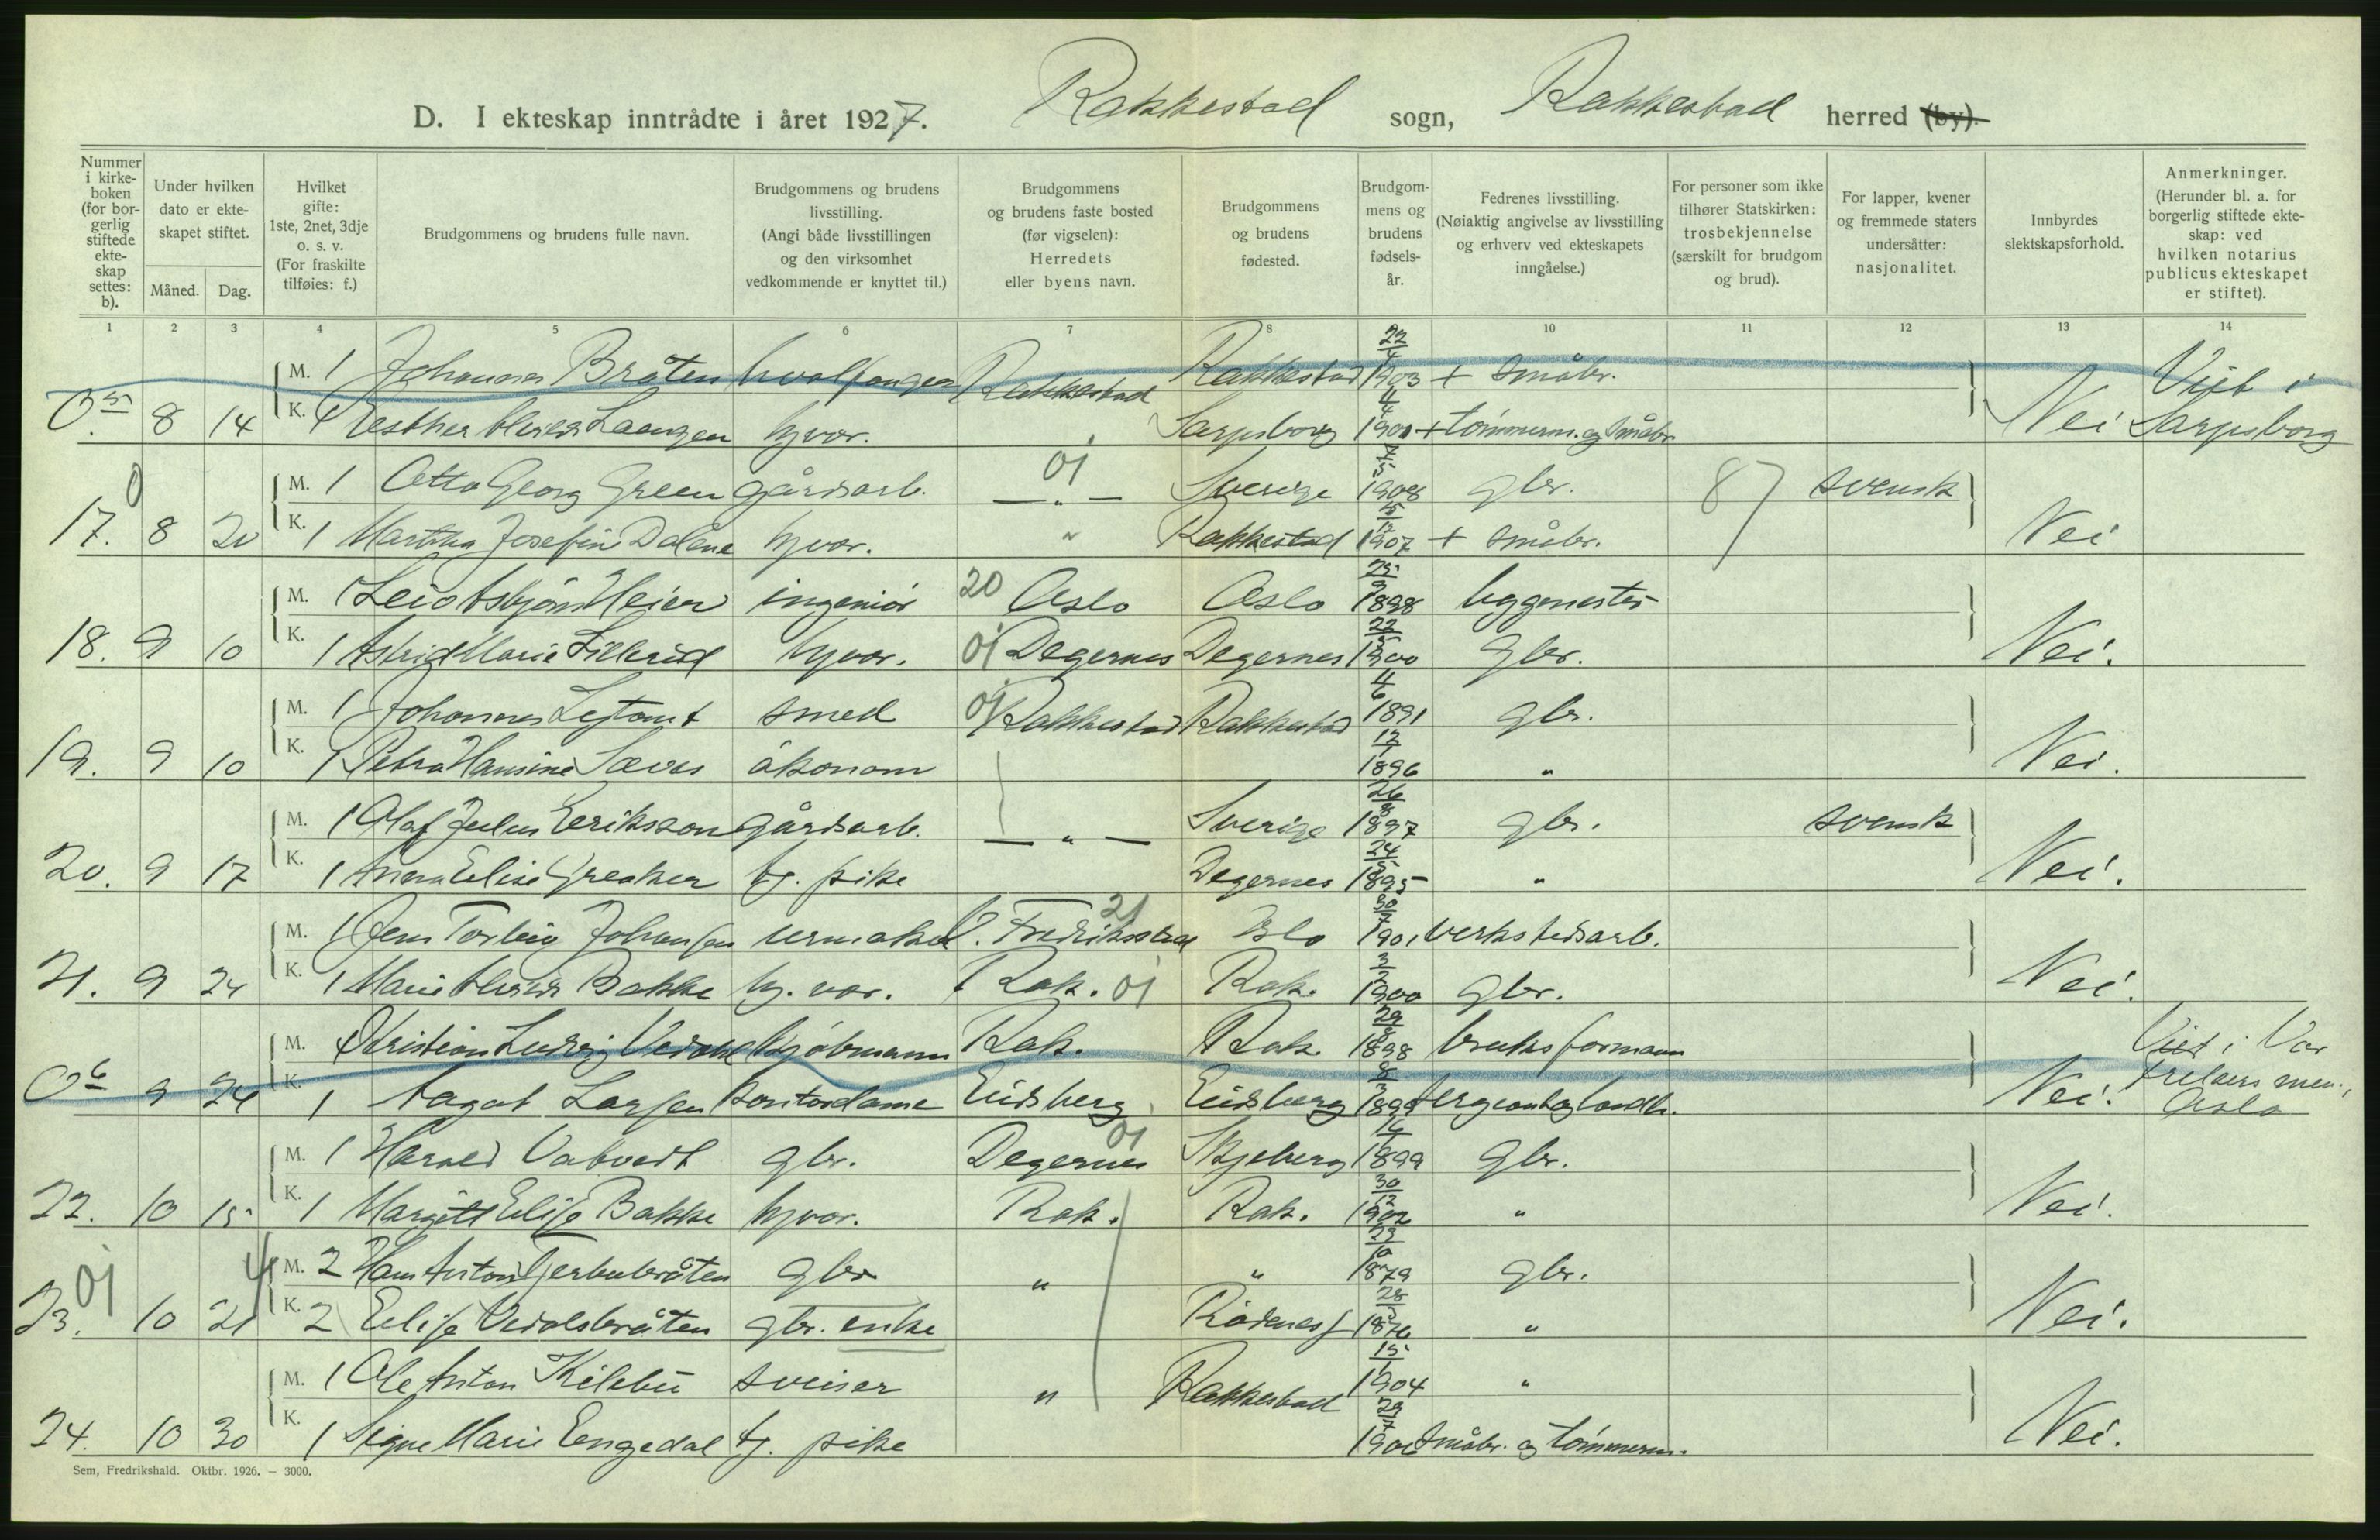 D. I ekteskap inntrådte i året 1927. Rakkestad sogn, Rakkestad herred (by).
Nummer i kirkeboken (for borgerlig stiftede ekteskap settes: b).
Under hvilken dato er ekteskapet stiftet.
Måned. Dag.
Hvilket gifte: 1ste, 2net, 3dje o. s. v. (For fraskilte tilføies: f.)
Brudgommens og brudens fulle navn.
Brudgommens og brudens livsstilling. (Angi både livsstillingen og den virksomhet vedkommende er knyttet til.)
Brudgommens og brudens faste bosted (før vigselen): Herredets eller byens navn.
Brudgommens og brudens fødested.
Brudgommens og brudens fødselsår.
Fedrenes livsstilling. (Nøiaktig angivelse av livsstilling og erhverv ved ekteskapets inngåelse.)
For personer som ikke tilhører Statskirken: trosbekjennelse (særskilt for brudgom og brud).
For lapper, kvener og fremmede staters undersåtter: nasjonalitet.
Innbyrdes slektskapsforhold.
Anmerkninger. (Herunder bl. a. for borgerlig stiftede ekteskap: ved hvilken notarius publicus ekteskapet er stiftet).
1 2 3 4 5 6 7 8 9 10 11 12 13 14
M. 1 Johannes Bråten hvalfanger Rakkestad Rakkestad 22/4 1903 + småbr. Viet i
8 14 K. 1 Esther Laangen hjvor. Sarpsborg 1901 + tømmerm. og småbr. Nei Sarpsborg
0 M. 1 Otto Georg Green gårdsarb. 01 — " — Sverige 1908 gbr. 87 svensk
17. 8 20 K. 1 Martha Josefine Dalene hjvor. " Rakkestad 1907 + småbr. Nei
M. 1 Leid Asbjørn Heier ingeniør 20 Oslo Oslo 1898 byggmester
18. 9 10 K. 1 Astrid Marie Lillerud hjvor. 01 Degernes Degernes 22 1900 gbr. Nei.
M. 1 Johannes smed 01 Rakkestad Rakkestad 4/6 1891 gbr.
19. 9 10 K. 1 Petra Hansine Sæves økonom 12 1896 " Nei.
M. 1 Olaf Julius Eriksson gårdsarb. — " — Sverige 26/8 1897 gbr. svensk
20. 9 17 K. 1 Anna Elise Greaker tj. pike Degernes 24 1895 " Nei.
M. 1 Jens Torleiv Johansen urmaker 21 Fredrikstad Oslo 30/7 1901 verkstedsarb.
21. 9 24 K. 1 Marie Bakke hj. vor. Rak. 01 Rak. 3/2 1900 gbr. Nei.
M. 1 Kristian Ludvig kjøbmann Rak. Rak. 29 1898 bruksformann Viet i Vår
9 24 K. 1 Aagot Larsen kontordame Eidsberg Eidsberg 1899 sergeant og landh. Nei. frelsers men., Oslo
M. 1 Harald Vatvedt gbr. Degernes 01 Skjeberg 1899 gbr.
22. 10 15 K. 1 Margitt Elise Bakke hjvor. Rak. Rak. 30/12 1902 " Nei.
01 4 M. 2 Hans Anton gbr " " 23/10 1879 gbr.
23. 10 21 K. 2 Elise gbr. enke Rødenes 28 1876 " Nei.
M. 1 Ole Anton Kilebu sveiser " Rakkestad 15/1 1904 "
24. 10 30 K. 1 Signe Marie Engedal tj. pike 29/7 1906 småbr. og tømmerm. Nei.
Sem, Fredrikshald. Oktbr. 1926. — 3000.